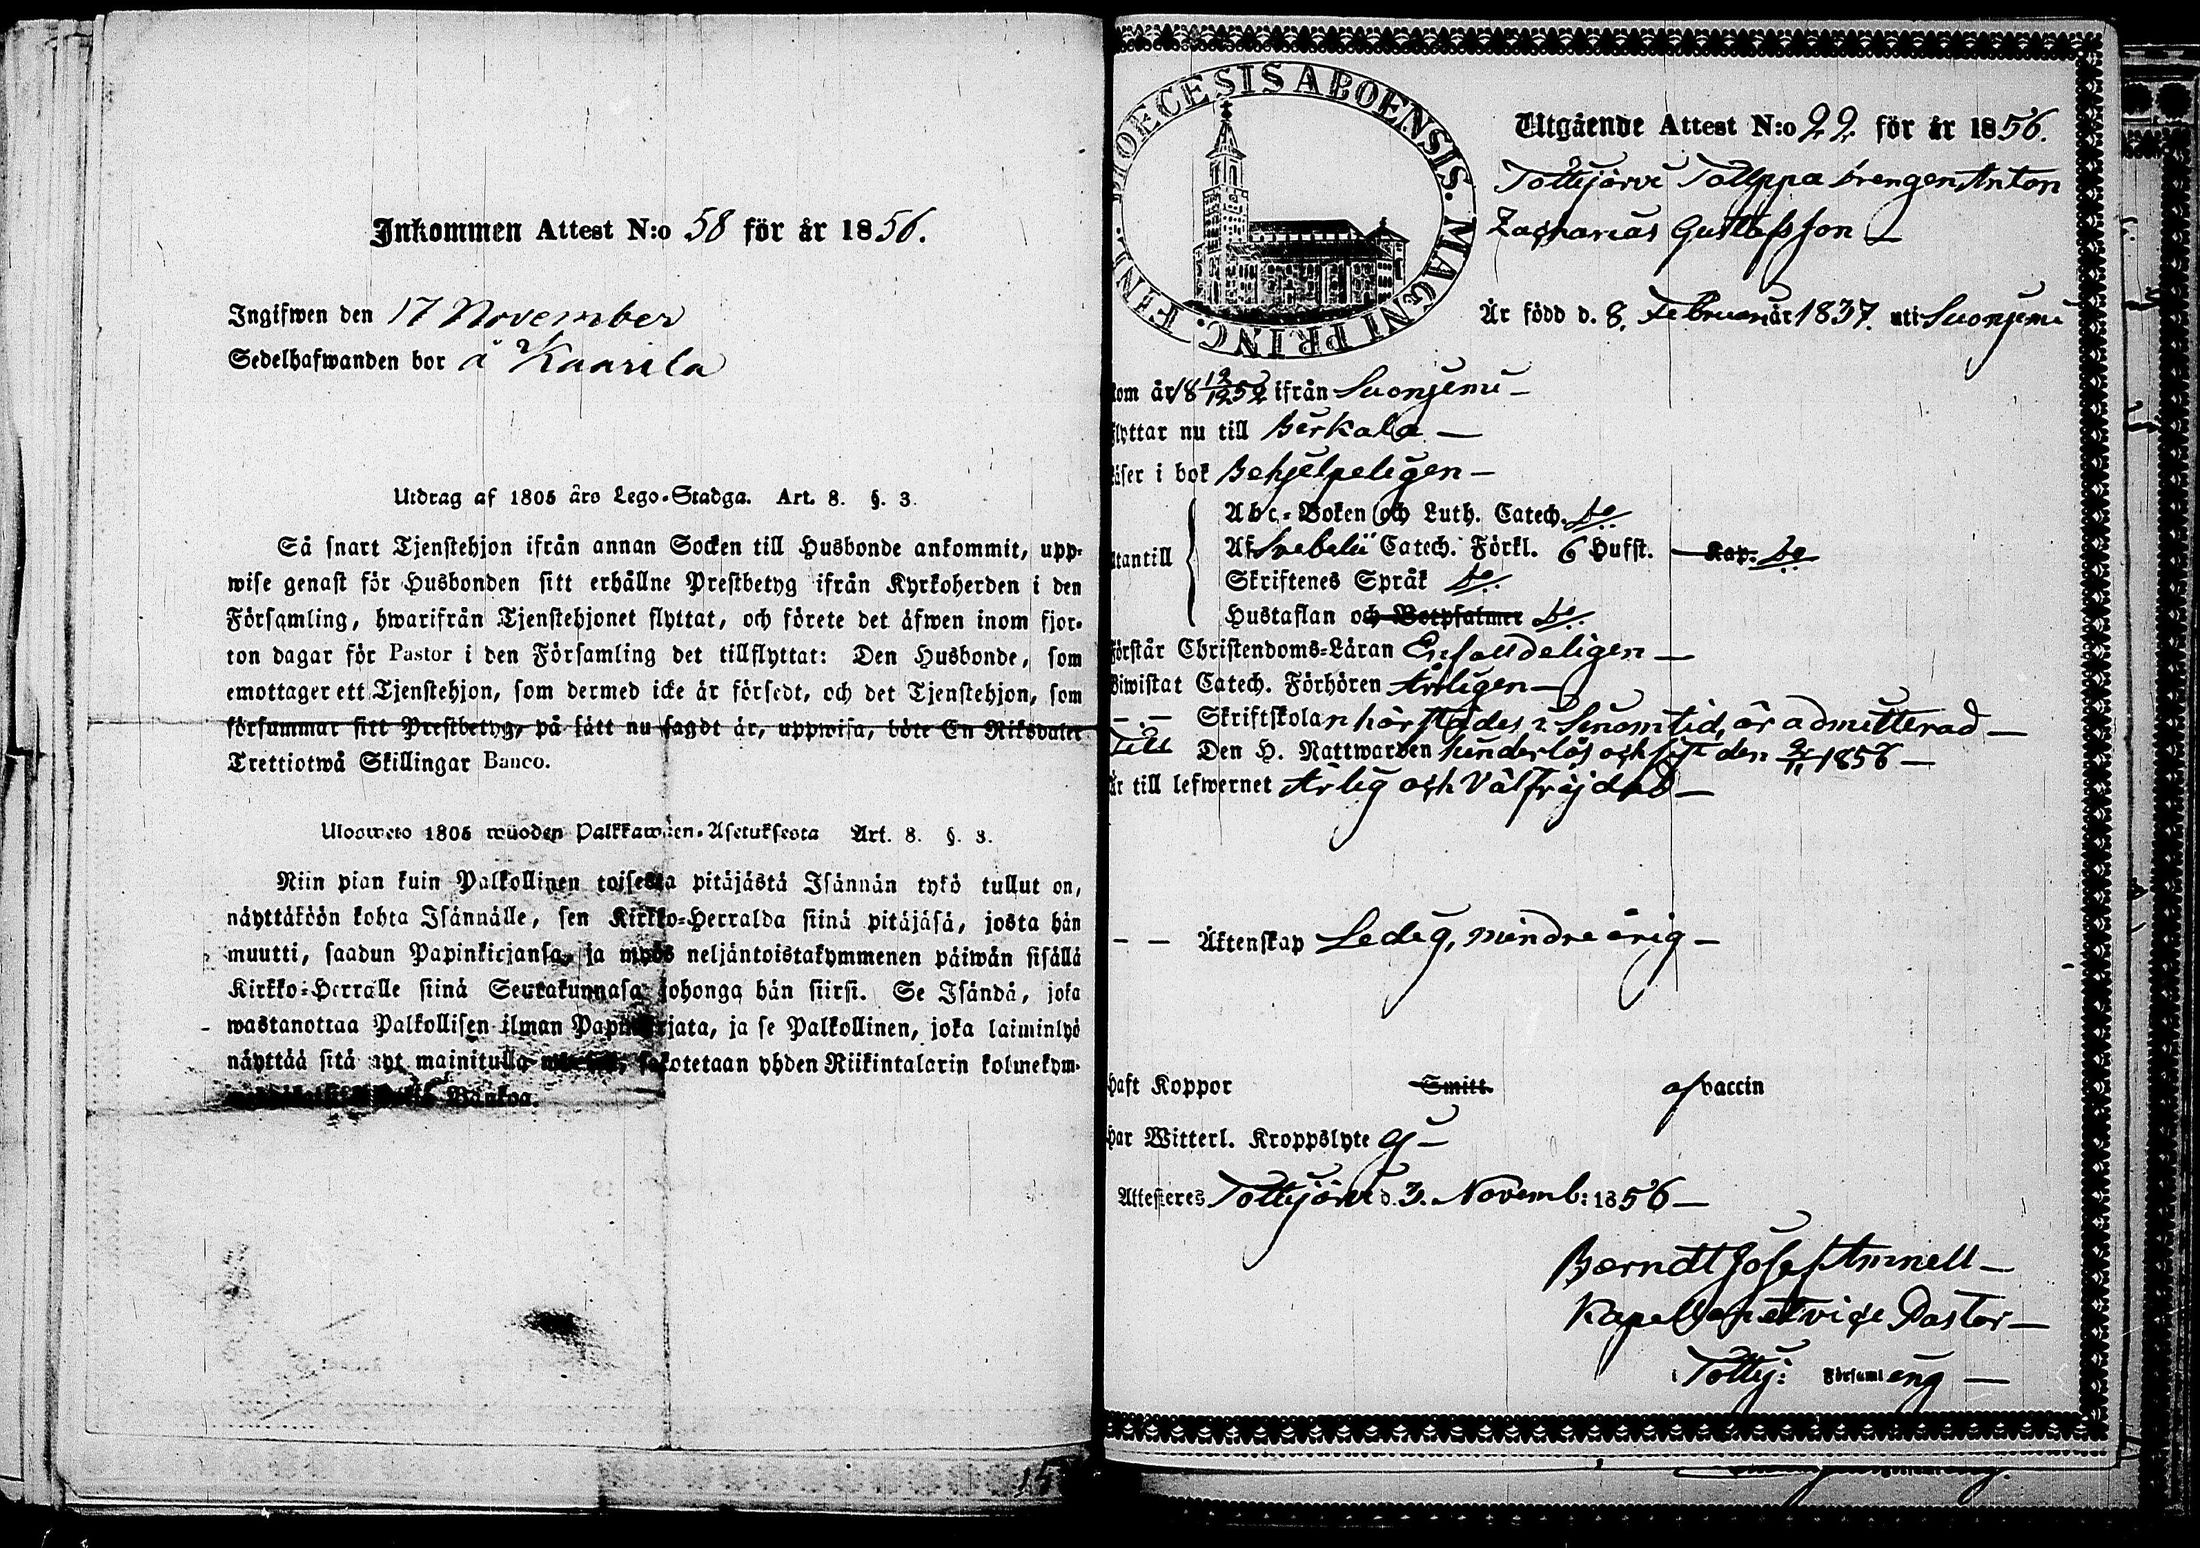 Inkommen Attest N:o 58 för år 1856.
Ingifwen den 17 November
Sedelhafwanden bor å Kaarila
Utdrag af 1805 års Lego-Stadga. Art. 8. §. 3.
Så snart Tjenstehjon ifrån annan Socken till Husbonde ankommit, upp-
wise genast för Husbonden sitt erhållne Prestbetyg ifrån Kyrkoherden i den
Församling, hwarifrån Tjenstehjonet flyttat, och förete det äfwen inom fjor-
ton dagar för Pastor i den Församling det tillflyttat: Den Husbonde, som
emottager ett Tjenstehjon, som dermed icke är försedt, och det Tjenstehjon, som
försummar sitt Prestbetyg, på sätt nu sagdt är, uppwisa, böte En Riksdaler
Trettiotwå Skillingar Banco.
Ulosweto 1805 wuoden Palkkawäen-Asetuksesta Art. 8. §. 3.
Niin pian kuin Palkollinen toisesta pitäjästä Isännän tykö tullut on,
näyttäköön kohta Isännälle, sen Kirkko-Herralda siinä pitäjäsä, josta hän
muutti, saadun Papinkirjansa, ja myös neljäntoistakymmenen päiwän sisällä
Kirkko-Herralle siinä Seurakunnasa johonga hän siirsi. Se Isändä, joka
wastanottaa Palkollisen ilman Papinkirjata, ja se Palkollinen, joka laiminlyö
näyttää sitä nyt mainitulla sakotetaan yhden Riikintalarin kolmekym-
Bankoa.
15
DIOECESIS ABOENSIS. MAGNI PRINC. FINL.
Utgående Attest N:o 22. för år 1856.
Tottijärvi Tolppa drengen Anton
Zacharias Gustafsson —
Är född d. 8. Februari år 1837. uti Suoniemi
kom år 18 12/12 52 ifrån Suoniemi —
flyttar nu till Birkala —
Läser i bok Behjelpeligen —
Utantill
Abc-Boken och Luth. Catech. do
Af Svebelii Catech. Förkl. 6 Hufst. Kap. do
Skriftenes Språk do
Hustaflan och Botpsalmer do
Förstår Christendoms-Läran Enfaldeligen —
Biwistat Catech. Förhören Årligen —
— — Skriftskolan härstädes i sinom tid, är admitterad —
till Den H. Nattwarden hinderlös och sist den 2/11 1856 —
Är till lefwernet Ärlig och Välfrejdad —
— — Äktenskap Ledig, minderårig —
haft Koppor Smitt. af vaccin
har Witterl. Kroppslyte ej —
Attesteres Tottijärvi d. 3. Novemb: 1856 —
Berndt Josef Aminell —
Kapellan et vice Pastor —
i Tottij: Församling —